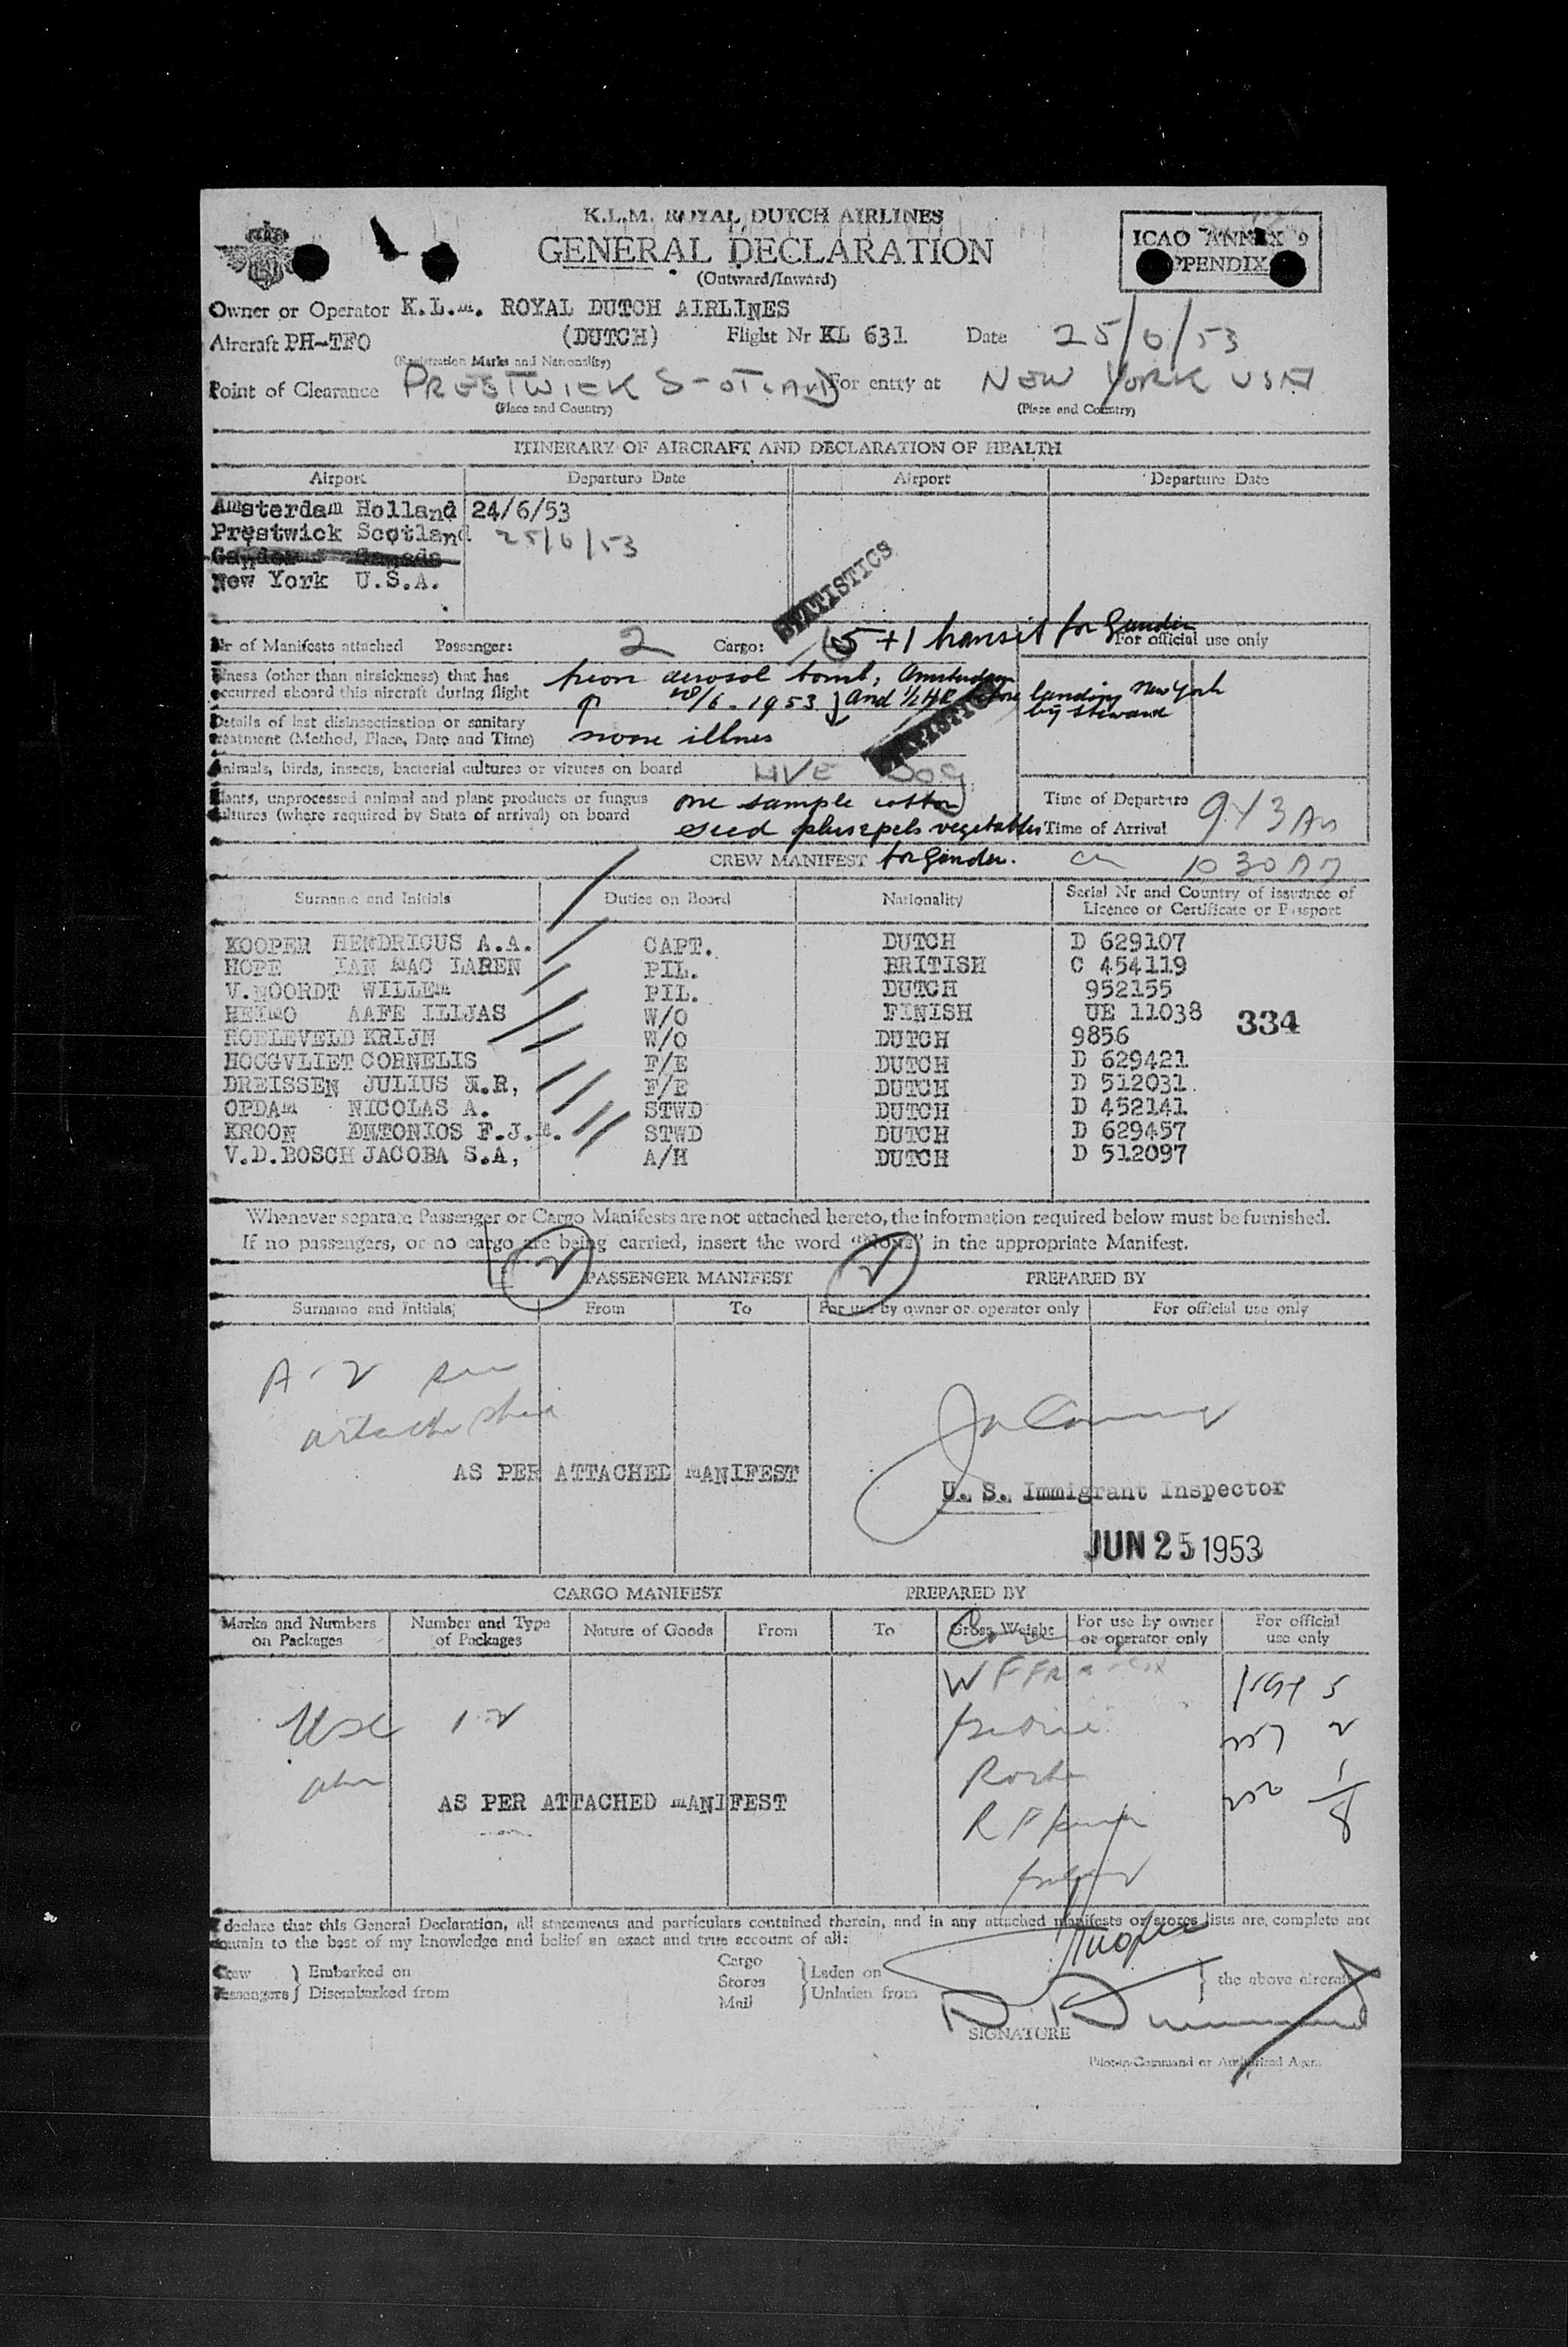 K.L.M. ROYAL DUTCH AIRLINES
GENERAL DECLARATION
(Outward/Inward)
ICAO ANNEX 9
APPENDIX
Owner or Operator K.L.M. ROYAL DUTCH AIRLINES
Aircraft PH-TFO (DUTCH) Flight Nr KL 631 Date 25/6/53
(Registration Marks and Nationality)
Point of Clearance PRESTWICK SCOTLAND For entry at NEW YORK USA
(Place and Country) (Place and Country)
ITINERARY OF AIRCRAFT AND DECLARATION OF HEALTH
Airport Departure Date Airport Departure Date
Amsterdam Holland 24/6/53
Prestwick Scotland 25/6/53
Gander Canada
New York U.S.A.
STATISTICS
Nr of Manifests attached Passenger: 2 Cargo: 5 +1 transit for Gander
For official use only
Illness (other than airsickness) that has
occurred aboard this aircraft during flight
aerosol bomb, Amsterdam
/6.1953 And 1/2 HR before landing New York
by steward
Details of last disinsectization or sanitary
treatment (Method, Place, Date and Time)
none illnes
STATISTICS
Animals, birds, insects, bacterial cultures or viruses on board LIVE DOG
Plants, unprocessed animal and plant products or fungus
cultures (where required by State of arrival) on board
one sample cotton
seed plus 2 pcls vegetables
for Gander.
Time of Departure
Time of Arrival 943 AM
1030 AM
CREW MANIFEST
Surname and Initials Duties on Board Nationality Serial Nr and Country of issuance of
Licence or Certificate or Passport
KOOPER HENDRICUS A.A. CAPT. DUTCH D 629107
HOPE IAN MAC LAREN PIL. BRITISH C 454119
V.NOORDT WILLEM PIL. DUTCH 952155
HEIMO AAFE ILIJAS W/O FINISH UE 11038
334
ROELEVELD KRIJN W/O DUTCH 9856
HOOGVLIET CORNELIS F/E DUTCH D 629421
DREISSEN JULIUS M.R, F/E DUTCH D 512031
OPDAM NICOLAS A. STWD DUTCH D 452141
KROON ENTONIOS F.J.M. STWD DUTCH D 629457
V.D.BOSCH JACOBA S.A, A/H DUTCH D 512097
Whenever separate Passenger or Cargo Manifests are not attached hereto, the information required below must be furnished.
If no passengers, or no cargo are being carried, insert the word "None" in the appropriate Manifest.
PASSENGER MANIFEST PREPARED BY
Surname and Initials From To For use by owner or operator only For official use only
A-2
AS PER ATTACHED MANIFEST
U. S. Immigrant Inspector
JUN 25 1953
CARGO MANIFEST PREPARED BY
Marks and Numbers
on Packages
Number and Type
of Packages
Nature of Goods From To Gross Weight For use by owner
or operator only
For official
use only
AS PER ATTACHED MANIFEST
I declare that this General Declaration, all statements and particulars contained therein, and in any attached manifests or stores lists are, complete and
contain to the best of my knowledge and belief an exact and true account of all:
Crew
Passengers
Embarked on
Disembarked from
Cargo
Stores
Mail
Laden on
Unladen from
the above aircraft
SIGNATURE
Pilot-in-Command or Authorized Agent